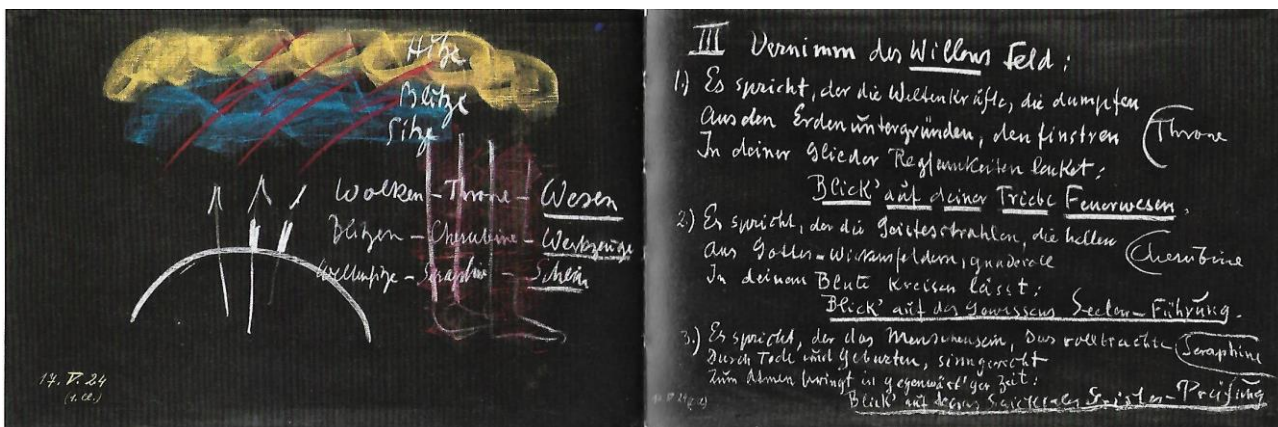 Hitze
Blitze
Sitze
Wolken – Throne – Wesen
Blitzen – Cherubine – Werkzeuge
– Seraphine – Schein
17. V. 24
(1. Cl.)
III Vernimm des Willens Feld:
1.) Es spricht, der die Weltenkräfte, die dumpfen
Aus den Erdenuntergründen, den finstren
In deiner Glieder Regsamkeiten lenket:
Throne
Blick' auf deiner Triebe Feuerwesen.
2.) Es spricht, der die Geistesstrahlen, die hellen
Aus Gottes-Wirkensfeldern, gnadevoll
In deinem Blute kreisen lässt:
Cherubine
Blick' auf des Gewissens Seelen-Führung.
3.) Es spricht, der das Menschensein, das vollbrachte
Seraphine
Durch Tode und Geburten, sinngerecht
Zum Atmen bringt in gegenwärt'ger Zeit:
Blick' auf deines Schicksales Geistes-Prüfung